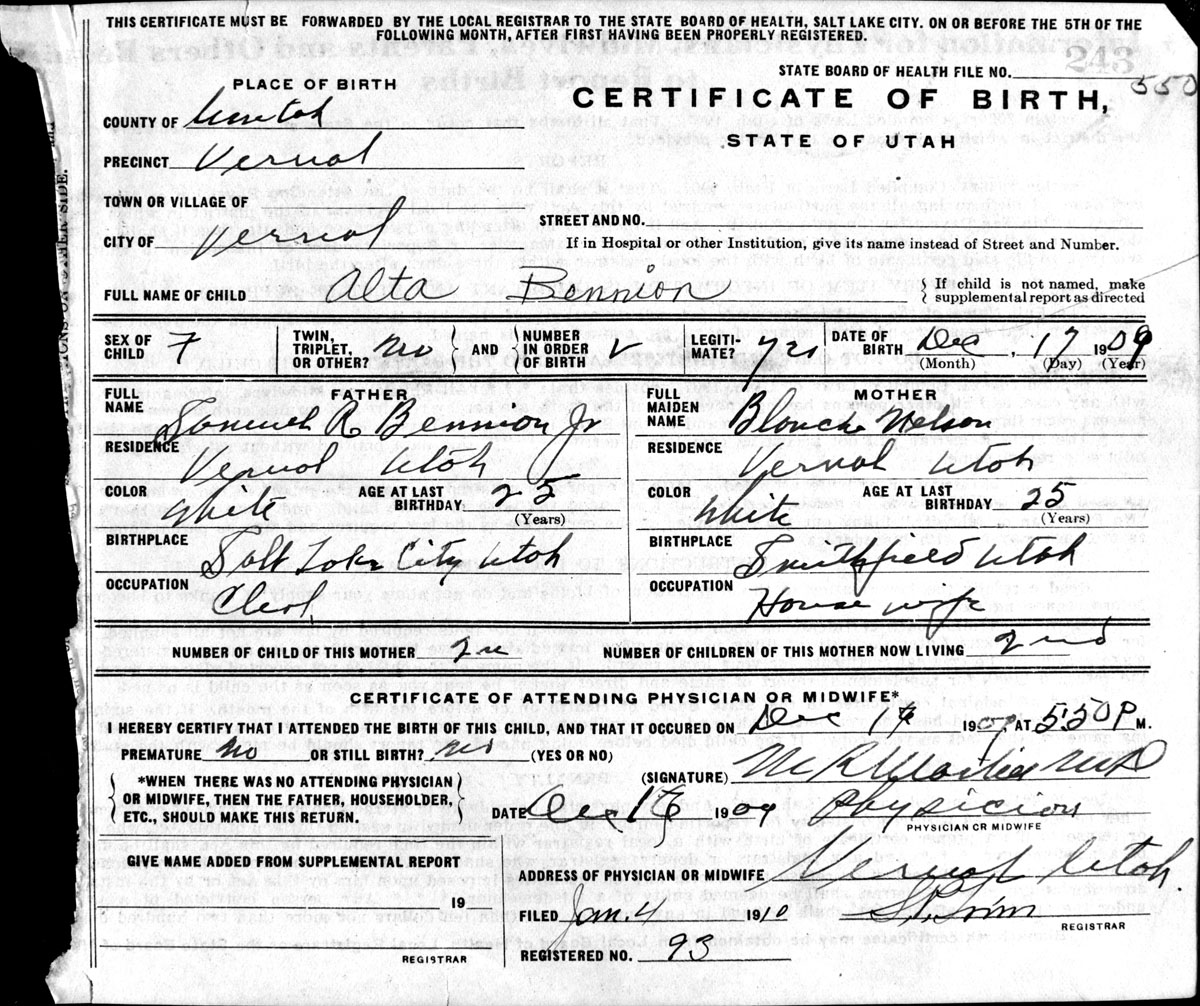 THIS CERTIFICATE MUST BE FORWARDED BY THE LOCAL REGISTRAR TO THE STATE BOARD OF HEALTH, SALT LAKE CITY. ON OR BEFORE THE 5TH OF THE
FOLLOWING MONTH, AFTER FIRST HAVING BEEN PROPERLY REGISTERED.
243
STATE BOARD OF HEALTH FILE NO. 550
PLACE OF BIRTH
CERTIFICATE OF BIRTH,
STATE OF UTAH
COUNTY OF Uintah
PRECINCT Vernal
TOWN OR VILLAGE OF
STREET AND NO.
CITY OF Vernal
If in Hospital or other Institution, give its name instead of Street and Number.
FULL NAME OF CHILD Alta Bennion
If child is not named, make
supplemental report as directed
SEX OF CHILD F
TWIN, TRIPLET, OR OTHER? No
AND
NUMBER IN ORDER OF BIRTH
LEGITI-MATE? Yes
DATE OF BIRTH Dec, 17 1909
(Month) (Day) (Year)
FATHER
FULL NAME Samuel R Bennion Jr
RESIDENCE Vernal Utah
COLOR White
AGE AT LAST BIRTHDAY: 25
(Years)
BIRTHPLACE Salt Lake City Utah
OCCUPATION Clerk
MOTHER
FULL MAIDEN NAME Blanche Nelson
RESIDENCE Vernal Utah
COLOR White
AGE AT LAST BIRTHDAY 25
(Years)
BIRTHPLACE Smithfield Utah
OCCUPATION House wife
NUMBER OF CHILD OF THIS MOTHER
NUMBER OF CHILDREN OF THIS MOTHER NOW LIVING 2nd
CERTIFICATE OF ATTENDING PHYSICIAN OR MIDWIFE*
I HEREBY CERTIFY THAT I ATTENDED THE BIRTH OF THIS CHILD, AND THAT IT OCCURED ON Dec 17 1909, AT 5:50 P M.
PREMATURE No OR STILL BIRTH? No (YES OR NO)
(SIGNATURE)
*WHEN THERE WAS NO ATTENDING PHYSICIAN
OR MIDWIFE, THEN THE FATHER, HOUSEHOLDER,
ETC., SHOULD MAKE THIS RETURN.
DATE Dec 1909 Physician
PHYSICIAN OR MIDWIFE
GIVE NAME ADDED FROM SUPPLEMENTAL REPORT
ADDRESS OF PHYSICIAN OR MIDWIFE Vernal Utah
19
FILED Jan. 4 1910
REGISTRAR
REGISTRAR
REGISTERED NO. 93